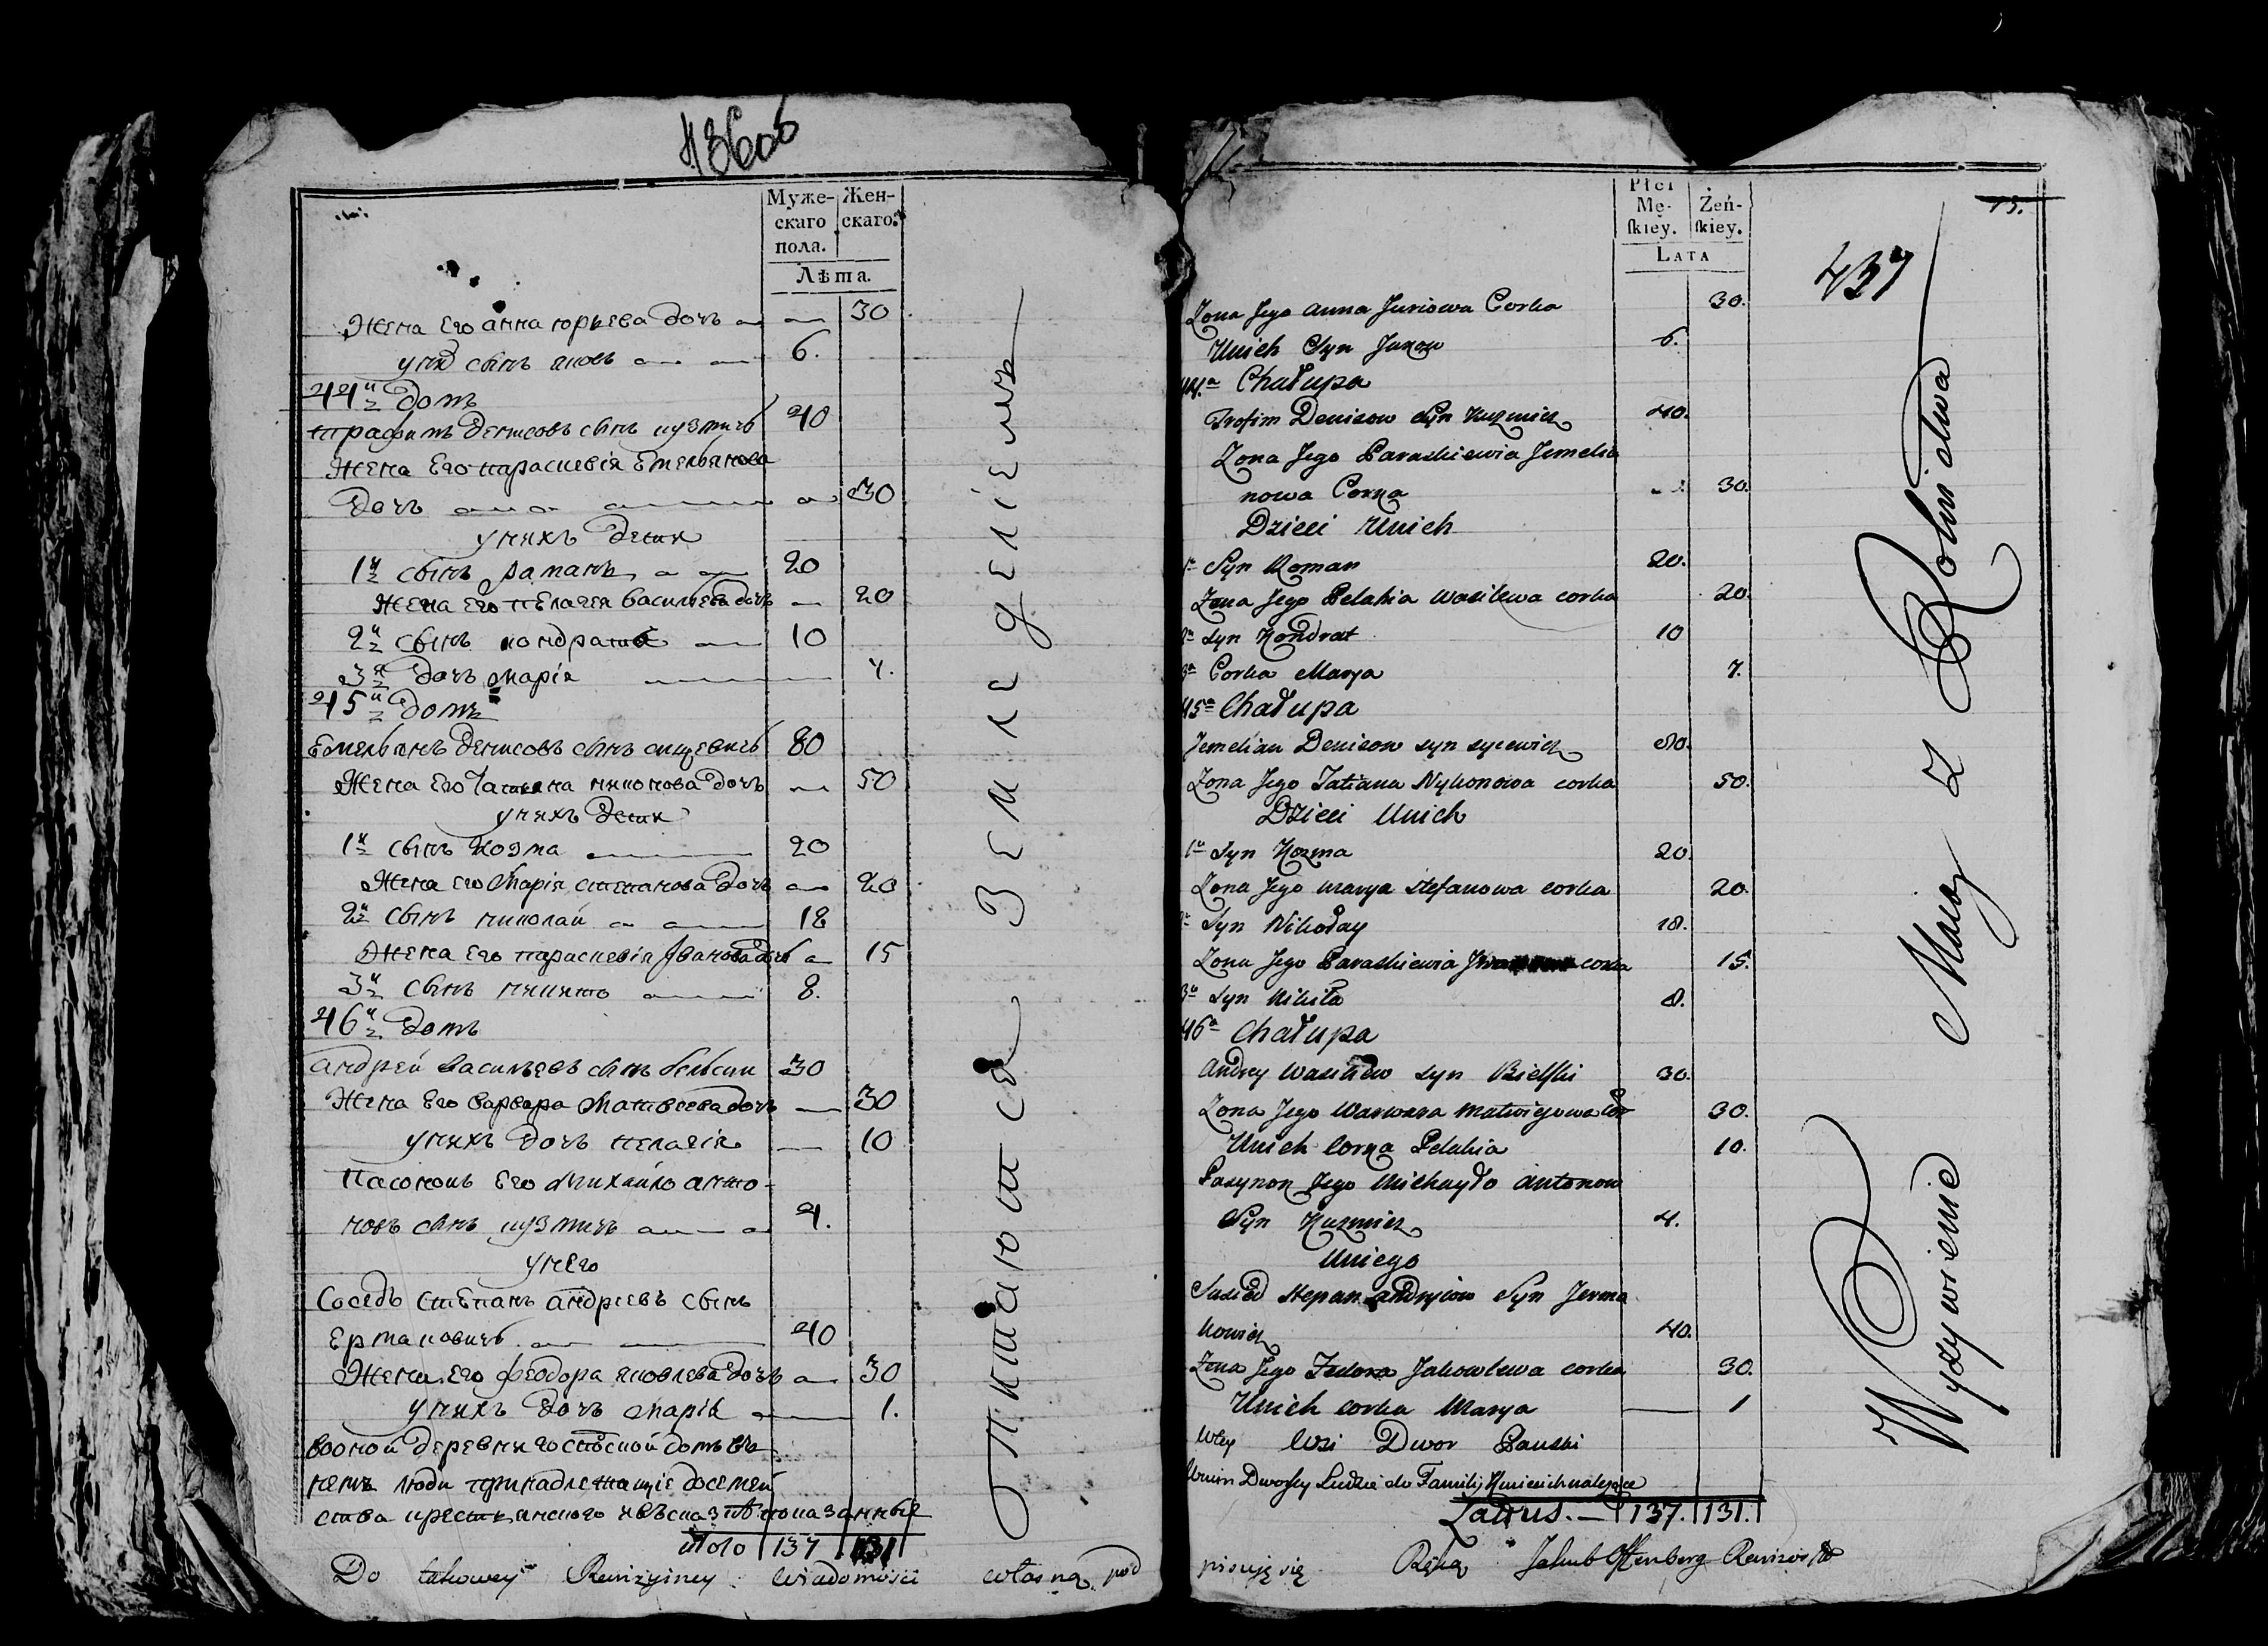 436об
Муже-
скаго
пола.
Жен-
скаго.
Лѣта.
Жена Его анна юрьева дочь 30
у них сынъ яковъ 6.
44й домъ
трафимъ денисовъ сынъ кузмичъ 40
Жена Его параскевія Емельянова
дочь 30
у нихъ дети
1й сынъ раманъ 20
Жена Его пелагея васильева дочь 20
2й сынъ кондратъ 10
3я дочь марія 7.
45й домъ
Емельянъ денисовъ сынъ сыцевичъ 80
Жена Его Татияна никонова дочь 50
у нихъ дети
1й сынъ козма 20
Жена Его марія степанова дочь 20
2й сынъ николай 18
Жена Его параскевія Иванова дочь 15
3й сынъ никита 8.
46й домъ
андрей васильевъ сынъ бельски 30
Жена Его варвара матвеева дочь 30
у нихъ дочь пелагія 10
Пасонокъ Его михайло анто-
новъ сынъ кузмичъ 4.
у него
Соседъ степанъ андреевъ сынъ
Ермаковичъ 40
Жена Его феодора яковлева дочь 30
у нихъ дочь марія 1.
в оной деревни господской домъ въ
немъ люди принадлежащіе до семей
ства крестьянского
Итого 137 131
Питаются земледеліемъ
Płci
Mę-
ſkiey.
Żeń-
ſkiey.
Lata
437
15.
Zona Jego Anna Juriowa Corka 30.
Unich Syn Jakow 6.
44.a Chałupa
Trofim Denisow Syn Kuzmicz 40.
Zona Jego Paraskiewia Jemelia
nowa Corka 30.
Dzieci Unich
1n Syn Roman 20.
Zona Jego Pelahia Wasilewa corka 20
2n Syn Kondrat 10
3a Corka Marya 7.
45a Chałupa
Jemelian Denisow syn sycewicz 80.
Zona Jego Tatiana Nykonowa corka 50.
Dzieci Unich
1n Syn Kozma 20.
Zona Jego Marya Stefanowa corka 20.
2n Syn Nikołay 18.
Zona Jego Paraskiewia corka 15.
3n Syn Nikita 8.
46a Chałupa
Andrey Wasilew syn Bielski 30.
Zona Jego Warwara Matwiejowa Cor 30.
Unich Corka Pelahia 10.
Pasynok Jego Michayło Antonow
Syn Kuzmicz 4.
Uniego
Susied Stepan Andrejow Syn Jerma
kowicz 40.
Zona Jego Fedora Jakowlewa corka 30.
Unich corka Marya 1
Wtey Wsi Dwor Panski
Wnim Dworscy Ludzie do Familij Kmiecich należące
Latrus. 137. 131.
Wyzywienie Maią z Rolnictwa
Do takowey Rewizyiney wiadomości własną pod pisuię się Ręką Jakub Offenberg Rewizor